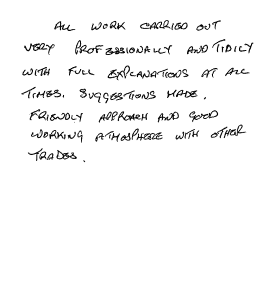 ALL WORK CARRIED OUT
VERY PROFESSIONALLY AND TIDILY
WITH FULL EXPLANATIONS AT ALL
TIMES. SUGGESTIONS MADE.
FRIENDLY APPROACH AND GOOD
WORKING ATMOSPHERE WITH OTHER
TRADES.